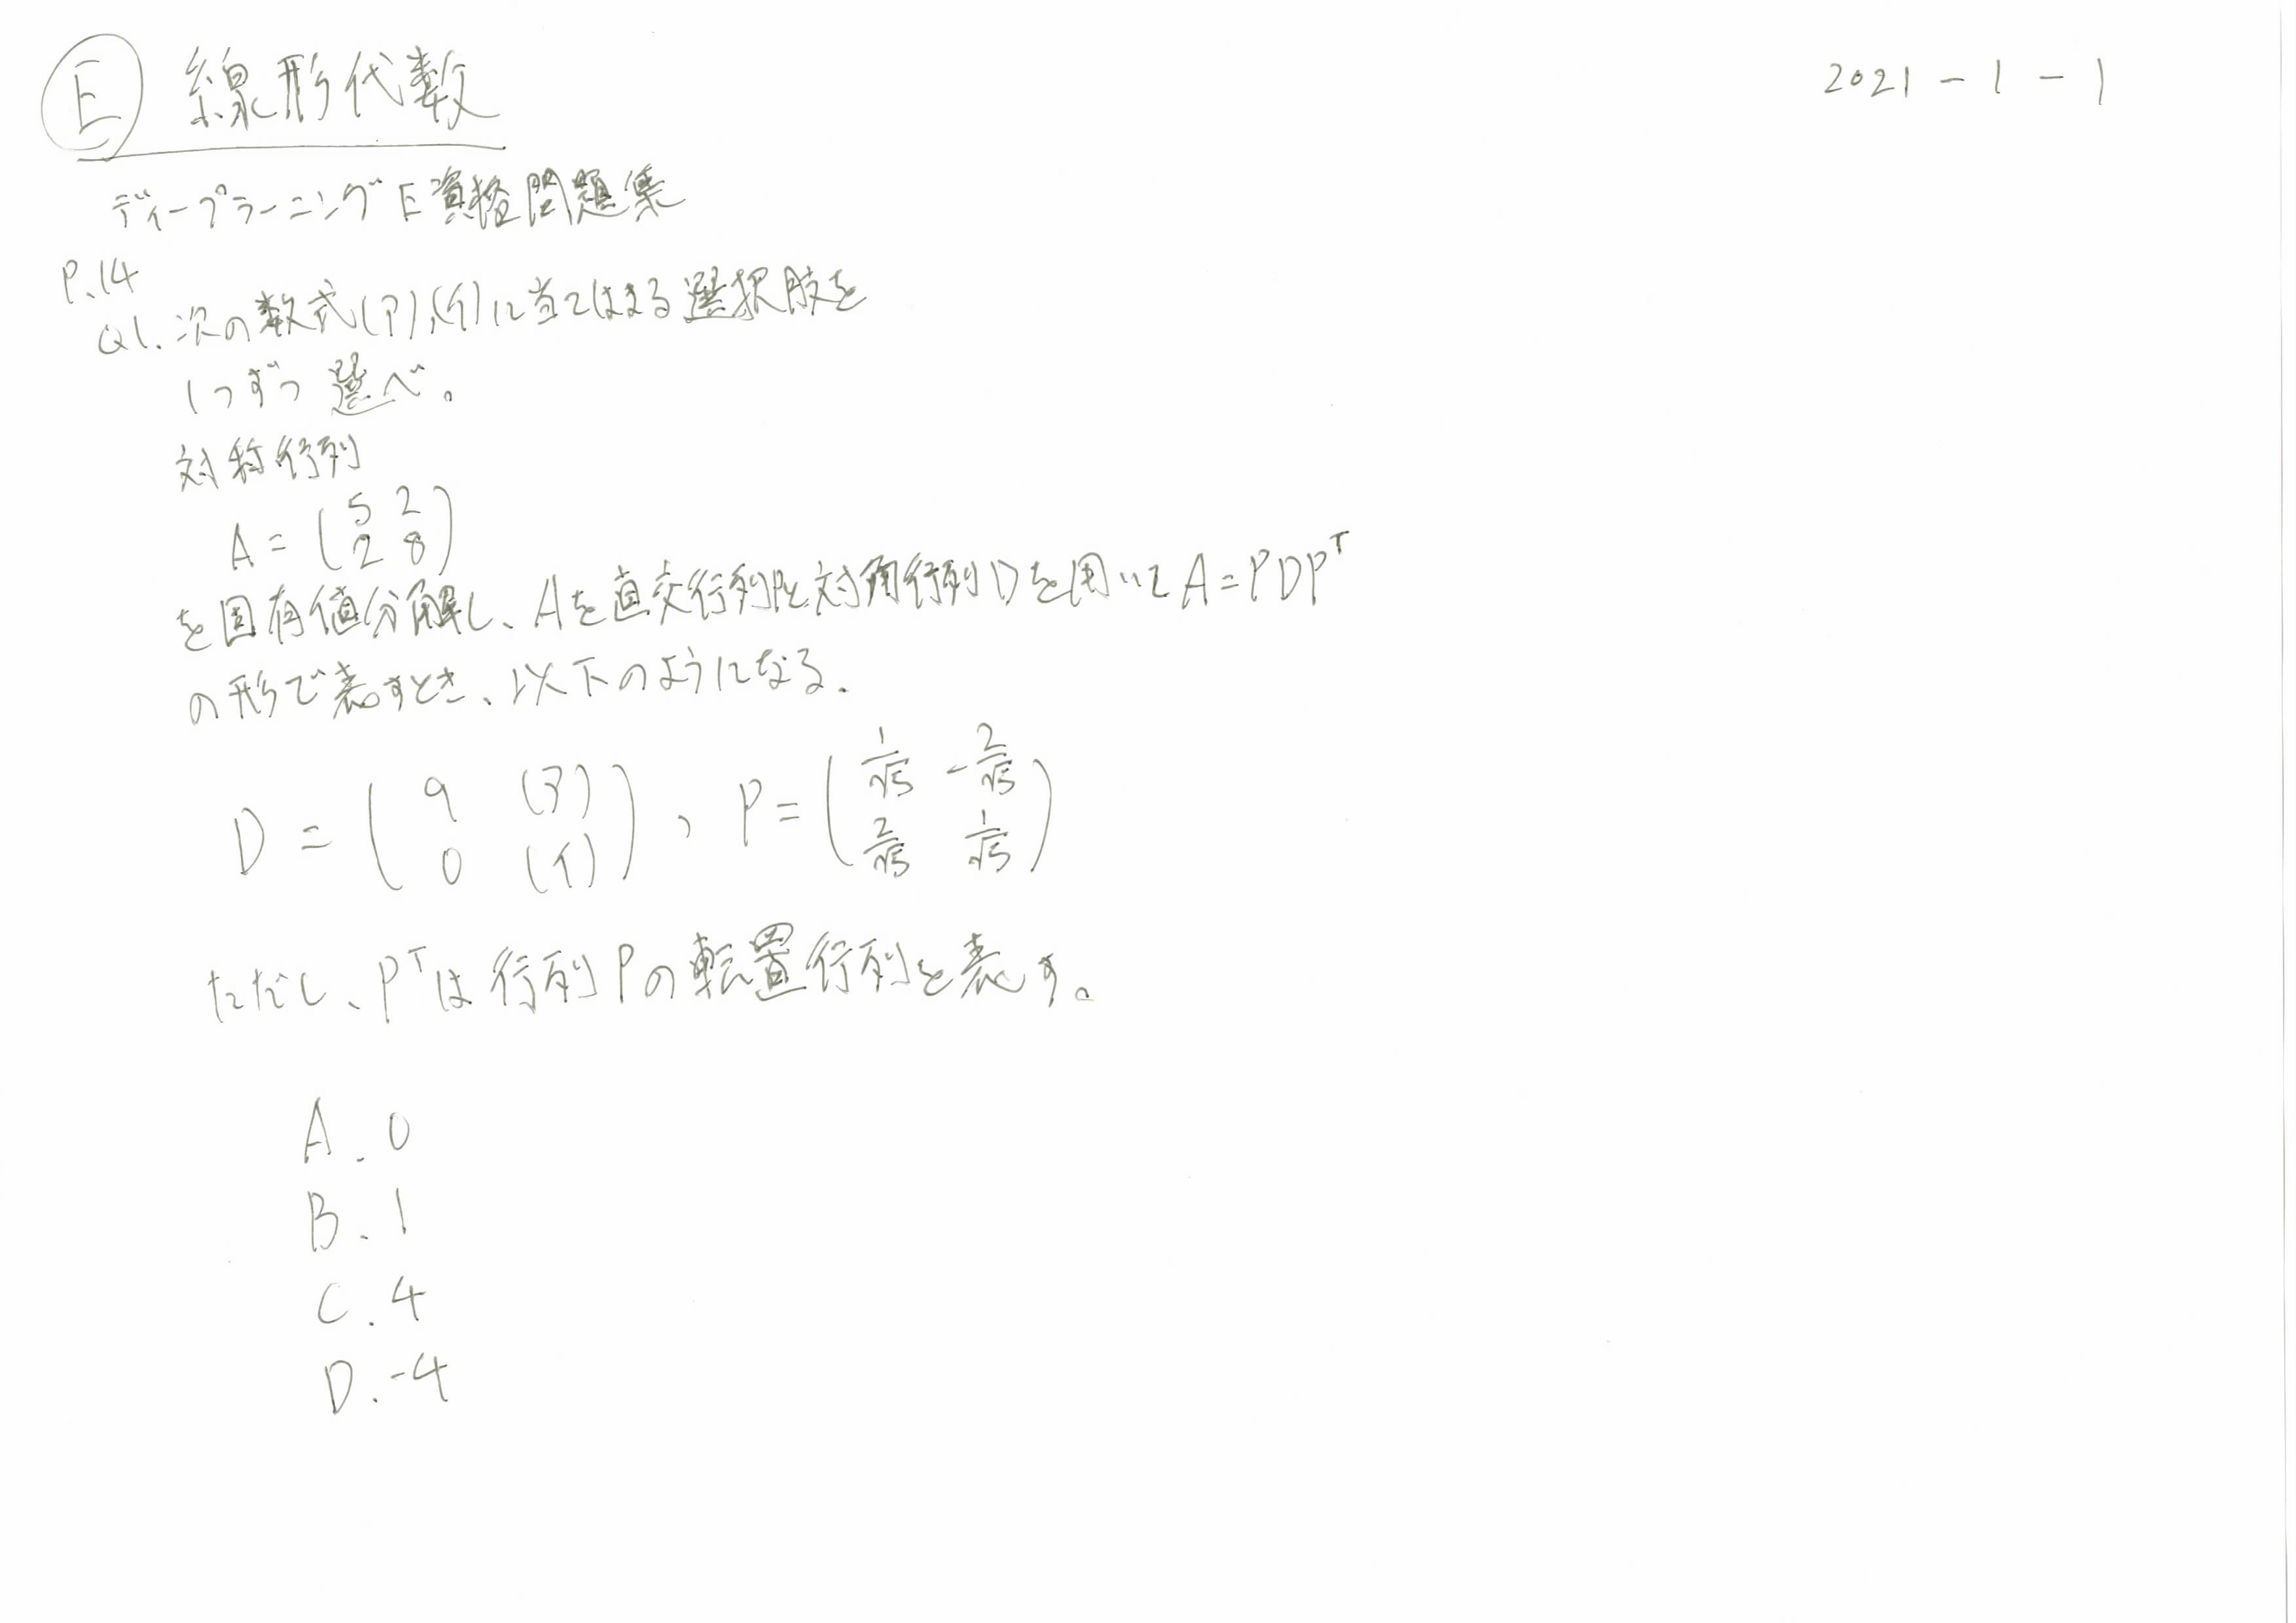 E 線形代数
2021-1-1
ディープラーニングE資格問題集
P.14
Q1. 次の数式(ア),(イ)に当てはまる選択肢を
1つずつ選べ。
対称行列
A = (5 2
2 8)
を固有値分解し、Aを直交行列Pと対角行列Dを用いてA=PDP^T
の形で表すとき、以下のようになる.
D = (9 (ア)
0 (イ)), P = (1/√5 -2/√5
2/√5 1/√5)
ただし、P^Tは行列Pの転置行列を表す。
A. 0
B. 1
C. 4
D. -4